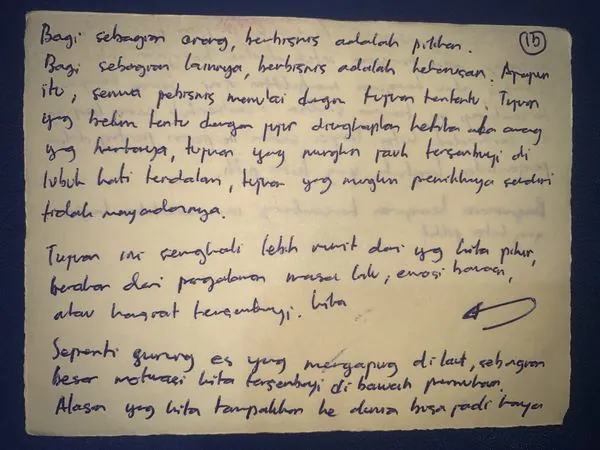 15
Bagi sebagian orang, berbisnis adalah pilihan.
Bagi sebagian lainnya, berbisnis adalah keharusan. Apapun
itu, semua pebisnis memulai dengan tujuan tertentu. Tujuan
yang belum tentu dengan jujur diungkapkan ketika ada orang
yang bertanya, tujuan yang mungkin jauh tersembunyi di
lubuk hati terdalam, tujuan yang mungkin pemiliknya sendiri
tidak menyadarinya.
Tujuan ini seringkali lebih rumit dari yg kita pikir,
berakar dari pengalaman masa lalu, emosi bawaan,
atau hasrat tersembunyi. Kita
Seperti gunung es yang mengapung di laut, sebagian
besar motivasi kita tersembunyi di bawah permukaan.
Alasan yang kita tampakkan ke dunia bisa jadi hanya